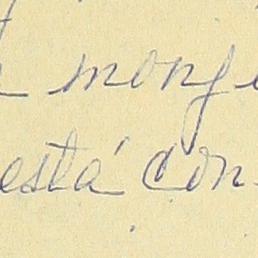 monj
está con